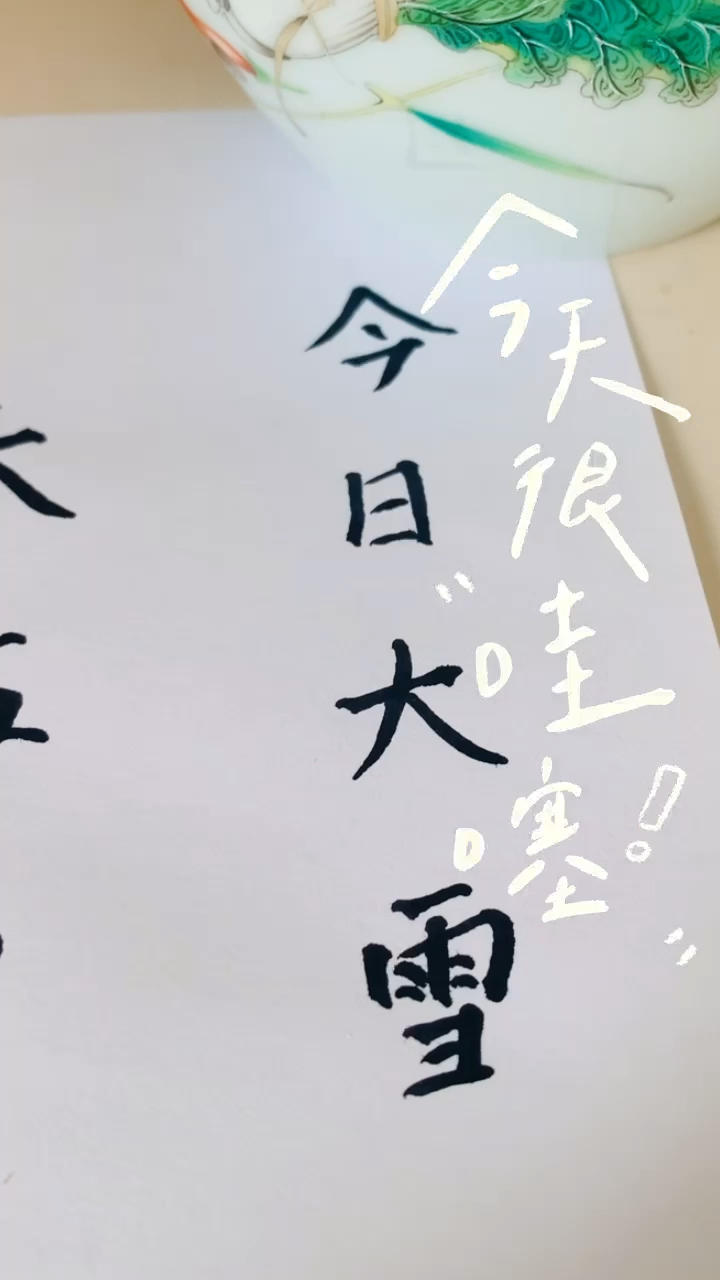 今天很
“哇噻!”
今日大雪